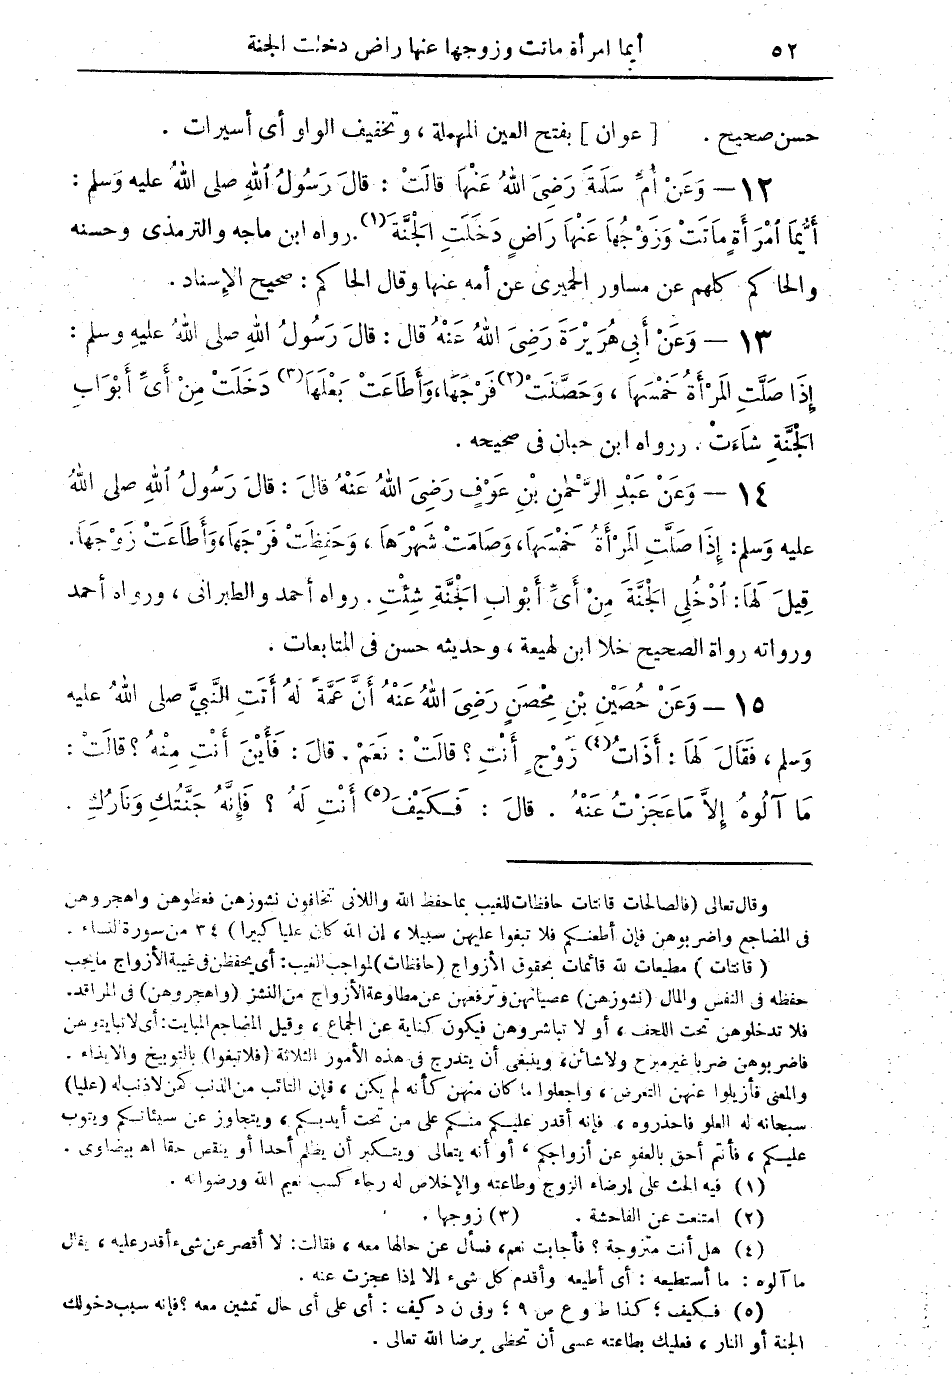 ٥٢ أيما امرأة ماتت وزوجها عنها راض دخلت الجنة
حسن صحيح . [ عوان ] بفتح العين المهملة ، وتخفيف الواو أى أسيرات .
١٢ – وَعَنْ أُمِّ سَلَمَةَ رَضِىَ اللهُ عَنْهَا قالَتْ : قالَ رَسُولُ اللهِ صلى اللهُ عليه وَسلم :
أَيُّمَا امْرَأَةٍ مَاتَتْ وَزَوْجُهَا عَنْهَا رَاضٍ دَخَلَتِ الجَنَّةَ(١). رواه ابن ماجه والترمذى وحسنه
والحاكم كلهم عن مساور الحميرى عن أمه عنها وقال الحاكم : صحيح الإسناد .
١٣ – وَعَنْ أَبِى هُرَيْرَةَ رَضِىَ اللهُ عَنْهُ قال : قالَ رَسُولُ اللهِ صلى اللهُ عليهِ وسلم :
إِذَا صَلَّتِ المَرْأَةُ خَمْسَهَا ، وَحَصَّنَتْ(٢) فَرْجَهَا، وَأَطَاعَتْ بَعْلَهَا(٣) دَخَلَتْ مِنْ أَىِّ أَبْوَابِ
الجَنَّةِ شاءَتْ . ررواه ابن حبان فى صحيحه .
١٤ – وَعَنْ عَبْدِ الرَّحْمٰنِ بْنِ عَوْفٍ رَضِىَ اللهُ عَنْهُ قالَ : قالَ رَسُولُ اللهِ صلى اللهُ
عليه وَسلم: إِذَا صَلَّتِ المَرْأَةُ خَمْسَهَا، وَصَامَتْ شَهْرَهَا ، وَحَفِظَتْ فَرْجَهَا، وَأَطَاعَتْ زَوْجَهَا.
قِيلَ لَهَا: ادْخُلِى الجَنَّةَ مِنْ أَىِّ أَبْوَابِ الجَنَّةِ شِئْتِ . رواه أحمد والطبرانى ، ورواه أحمد
ورواته رواة الصحيح خلا ابن لهيعة ، وحديثه حسن فى المتابعات .
١٥ – وَعَنْ حُصَيْنِ بْنِ مِحْصَنٍ رَضِىَ اللهُ عَنْهُ أَنَّ عَمَّةً لَهُ أَتَتِ النَّبِىَّ صلى اللهُ عليه
وَسلم ، فَقَالَ لَهَا : أَذَاتُ(٤) زَوْجٍ أَنْتِ ؟ قالَتْ : نَعَمْ . قالَ : فَأَيْنَ أَنْتِ مِنْهُ ؟ قالَتْ :
مَا آلُوهُ إِلاَّ مَا عَجَزْتُ عَنْهُ . قالَ : فَكَيْفَ(٥) أَنْتِ لَهُ ؟ فَإِنَّهُ جَنَّتُكِ وَنَارُكِ .
وقال تعالى (فالصالحات قانتات حافظات للغيب بما حفظ الله واللاتى تخافون نشوزهن فعظوهن واهجروهن
فى المضاجع واضربوهن فإن أطعنكم فلا تبغوا عليهن سبيلا ، إن الله كان عليا كبيرا ) ٣٤ من سورة النساء .
( قانتات ) مطيعات لله قائمات بحقوق الأزواج (حافظات) لمواجب الغيب: أى يحفظن فى غيبة الأزواج ما يجب
حفظه فى النفس والمال (نشوزهن) عصيانهن وترفعهن عن مطاوعة الأزواج من النشز (واهجروهن) فى المراقد.
فلا تدخلوهن تحت اللحف ، أو لا تباشروهن فيكون كناية عن الجماع ، وقيل المضاجع المبايت: أى لا تبايتوهن
فاضربوهن ضربا غير مبرح ولا شائن، وينبغى أن يتدرج فى هذه الأمور الثلاثة (فلا تبغوا) بالتوبيخ والايذاء .
والمعنى فأزيلوا عنهن التعرض ، واجعلوا ما كان منهن كأنه لم يكن ، فإن التائب من الذنب كمن لا ذنب له (عليا)
سبحانه له العلو فاحذروه ، فإنه أقدر عليكم منكم على من تحت أيديكم ، ويتجاوز عن سيئاتكم ويتوب
عليكم ، فأنتم أحق بالعفو عن أزواجكم ، أو أنه يتعالى ويتكبر أن يظلم أحدا أو ينقص حقا اه بيضاوى .
(١) فيه الحث على إرضاء الزوج وطاعته والإخلاص له رجاء كسب نعيم الله ورضوانه .
(٢) امتنعت عن الفاحشة . (٣) زوجها .
(٤) هل أنت متزوجة ؟ فأجابت نعم، فسأل عن حالها معه ، فقالت: لا أقصر عن شىء أقدر عليه ، يقال
ما آلوه : ما أستطيعه : أى أطيعه وأقدم كل شىء إلا إذا عجزت عنه .
(٥) فكيف ؛ كذا ط و ع ص ٩ ؛ وفى ن د كيف : أى على أى حال تمشين معه ؟ فإنه سبب دخولك
الجنة أو النار ، فعليك بطاعته عسى أن تحظى برضا الله تعالى .